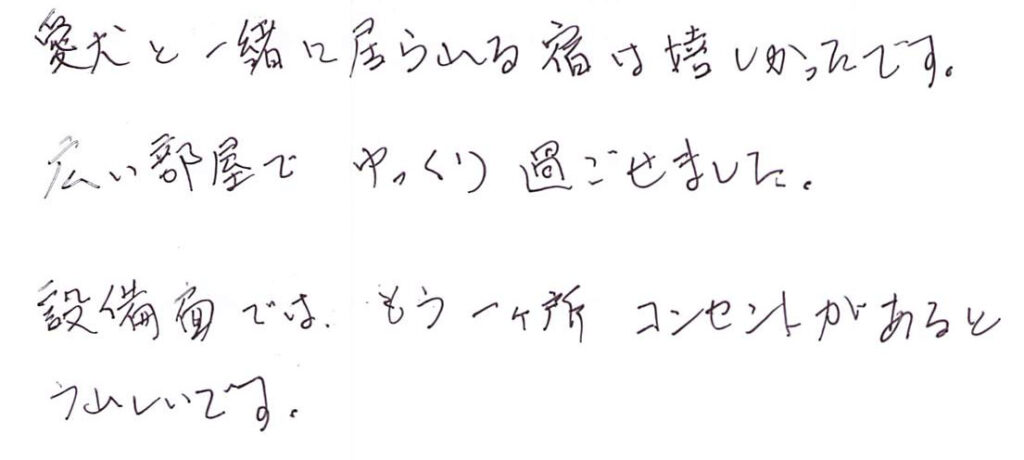 愛犬と一緒に居られる宿は嬉しかったです。
広い部屋で ゆっくり過ごせました。
設備面では、もう一ヶ所 コンセントがあると
うれしいです。